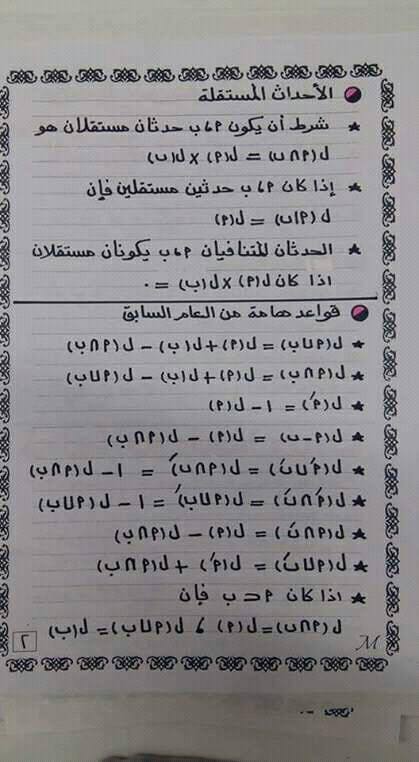 الأحداث المستقلة
★ شرط أن يكون م، ب حدثان مستقلان هو
ل(م∩ب) = ل(م) × ل(ب)
★ إذا كان م، ب حدثين مستقلين فإن
ل(م|ب) = ل(م)
★ الحدثان المتنافيان م، ب يكونان مستقلان
اذا كان ل(م) × ل(ب) = ٠
قواعد هامة من العام السابق
★ ل(م∪ب) = ل(م) + ل(ب) − ل(م∩ب)
★ ل(م∩ب) = ل(م) + ل(ب) − ل(م∪ب)
★ ل(م′) = ١ − ل(م)
★ ل(م−ب) = ل(م) − ل(م∩ب)
★ ل(م′∪ب′) = ل(م∩ب)′ = ١ − ل(م∩ب)
★ ل(م′∩ب′) = ل(م∪ب)′ = ١ − ل(م∪ب)
★ ل(م∩ب′) = ل(م) − ل(م∩ب)
★ ل(م′∪ب) = ل(م′) + ل(م∩ب)
★ اذا كان م⊂ب فإن
ل(م∩ب) = ل(م) ، ل(م∪ب) = ل(ب)
M
٢